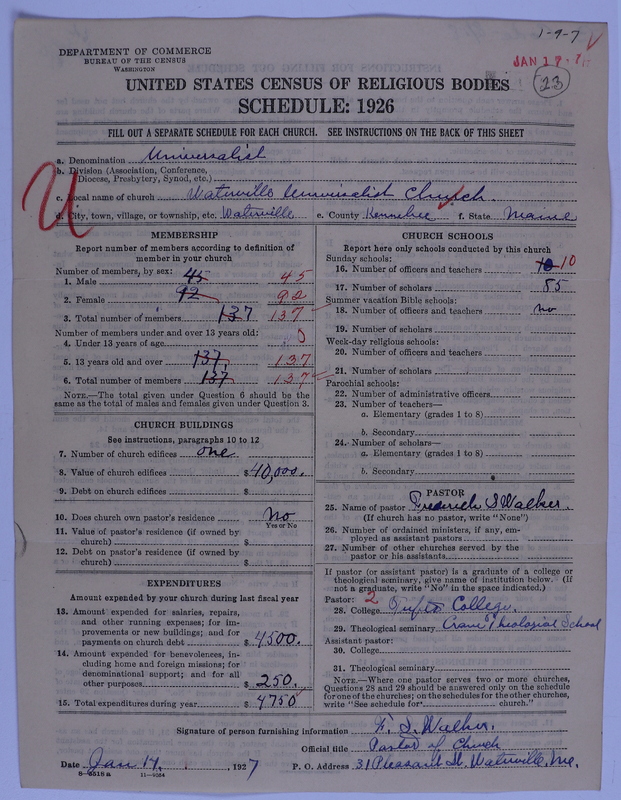 1-9-7
DEPARTMENT OF COMMERCE
BUREAU OF THE CENSUS
WASHINGTON
JAN 17
23
UNITED STATES CENSUS OF RELIGIOUS BODIES
SCHEDULE: 1926
FILL OUT A SEPARATE SCHEDULE FOR EACH CHURCH. SEE INSTRUCTIONS ON THE BACK OF THIS SHEET
U
a. Denomination Universalist
b. Division (Association, Conference, Diocese, Presbytery, Synod, etc.)
c. Local name of church Waterville Universalist Church.
d. City, town, village, or township, etc. Waterville e. County Kennebec f. State Maine
MEMBERSHIP
Report number of members according to definition of
member in your church
Number of members, by sex:
1. Male 45 45
2. Female 92 92
3. Total number of members 137 137
Number of members under and over 13 years old:
4. Under 13 years of age 0
5. 13 years old and over 137 137
6. Total number of members 137 137
NOTE.—The total given under Question 6 should be
same as the total of males and females given under Question 3.
CHURCH BUILDINGS
See instructions, paragraphs 10 to 12
7. Number of church edifices one
8. Value of church edifices $40,000.
9. Debt on church edifices $
10. Does church own pastor's residence No
Yes or No
11. Value of pastor's residence (if owned by
church) $
12. Debt on pastor's residence (if owned by
church) $
EXPENDITURES
Amount expended by your church during last fiscal year
13. Amount expended for salaries, repairs,
and other running expenses; for im-
provements or new buildings; and for
payments on church debt $4500.
14. Amount expended for benevolences, in-
cluding home and foreign missions; for
denominational support; and for all
other purposes $250.
15. Total expenditures during year $4750
CHURCH SCHOOLS
Report here only schools conducted by this church
Sunday schools:
16. Number of officers and teachers 10 10
17. Number of scholars 85
Summer vacation Bible schools:
18. Number of officers and teachers no
19. Number of scholars
Week-day religious schools:
20. Number of officers and teachers
21. Number of scholars
Parochial schools:
22. Number of administrative officers
23. Number of teachers—
a. Elementary (grades 1 to 8)
b. Secondary
24. Number of scholars—
a. Elementary (grades 1 to 8)
b. Secondary
PASTOR
25. Name of pastor Frederick S Walker.
(If church has no pastor, write "None")
26. Number of ordained ministers, if any, em-
ployed as assistant pastors
27. Number of other churches served by the
pastor or his assistants
If pastor (or assistant pastor) is a graduate of a college or
theological seminary, give name of institution below. (If
not a graduate, write "No" in the space indicated.)
Pastor: 2
28. College Tufts College.
29. Theological seminary Crane Theological School
Assistant pastor:
30. College
31. Theological seminary
NOTE.—Where one pastor serves two or more churches,
Questions 28 and 29 should be answered only on the schedule
for one of the churches; on the schedules for the other churches,
write "See schedule for church."
Signature of person furnishing information F. S. Walker.
Official title Pastor of Church
Date Jan 17, 1927 P. O. Address 31 Pleasant St. Waterville, Me.
8-6518 a 11-9584